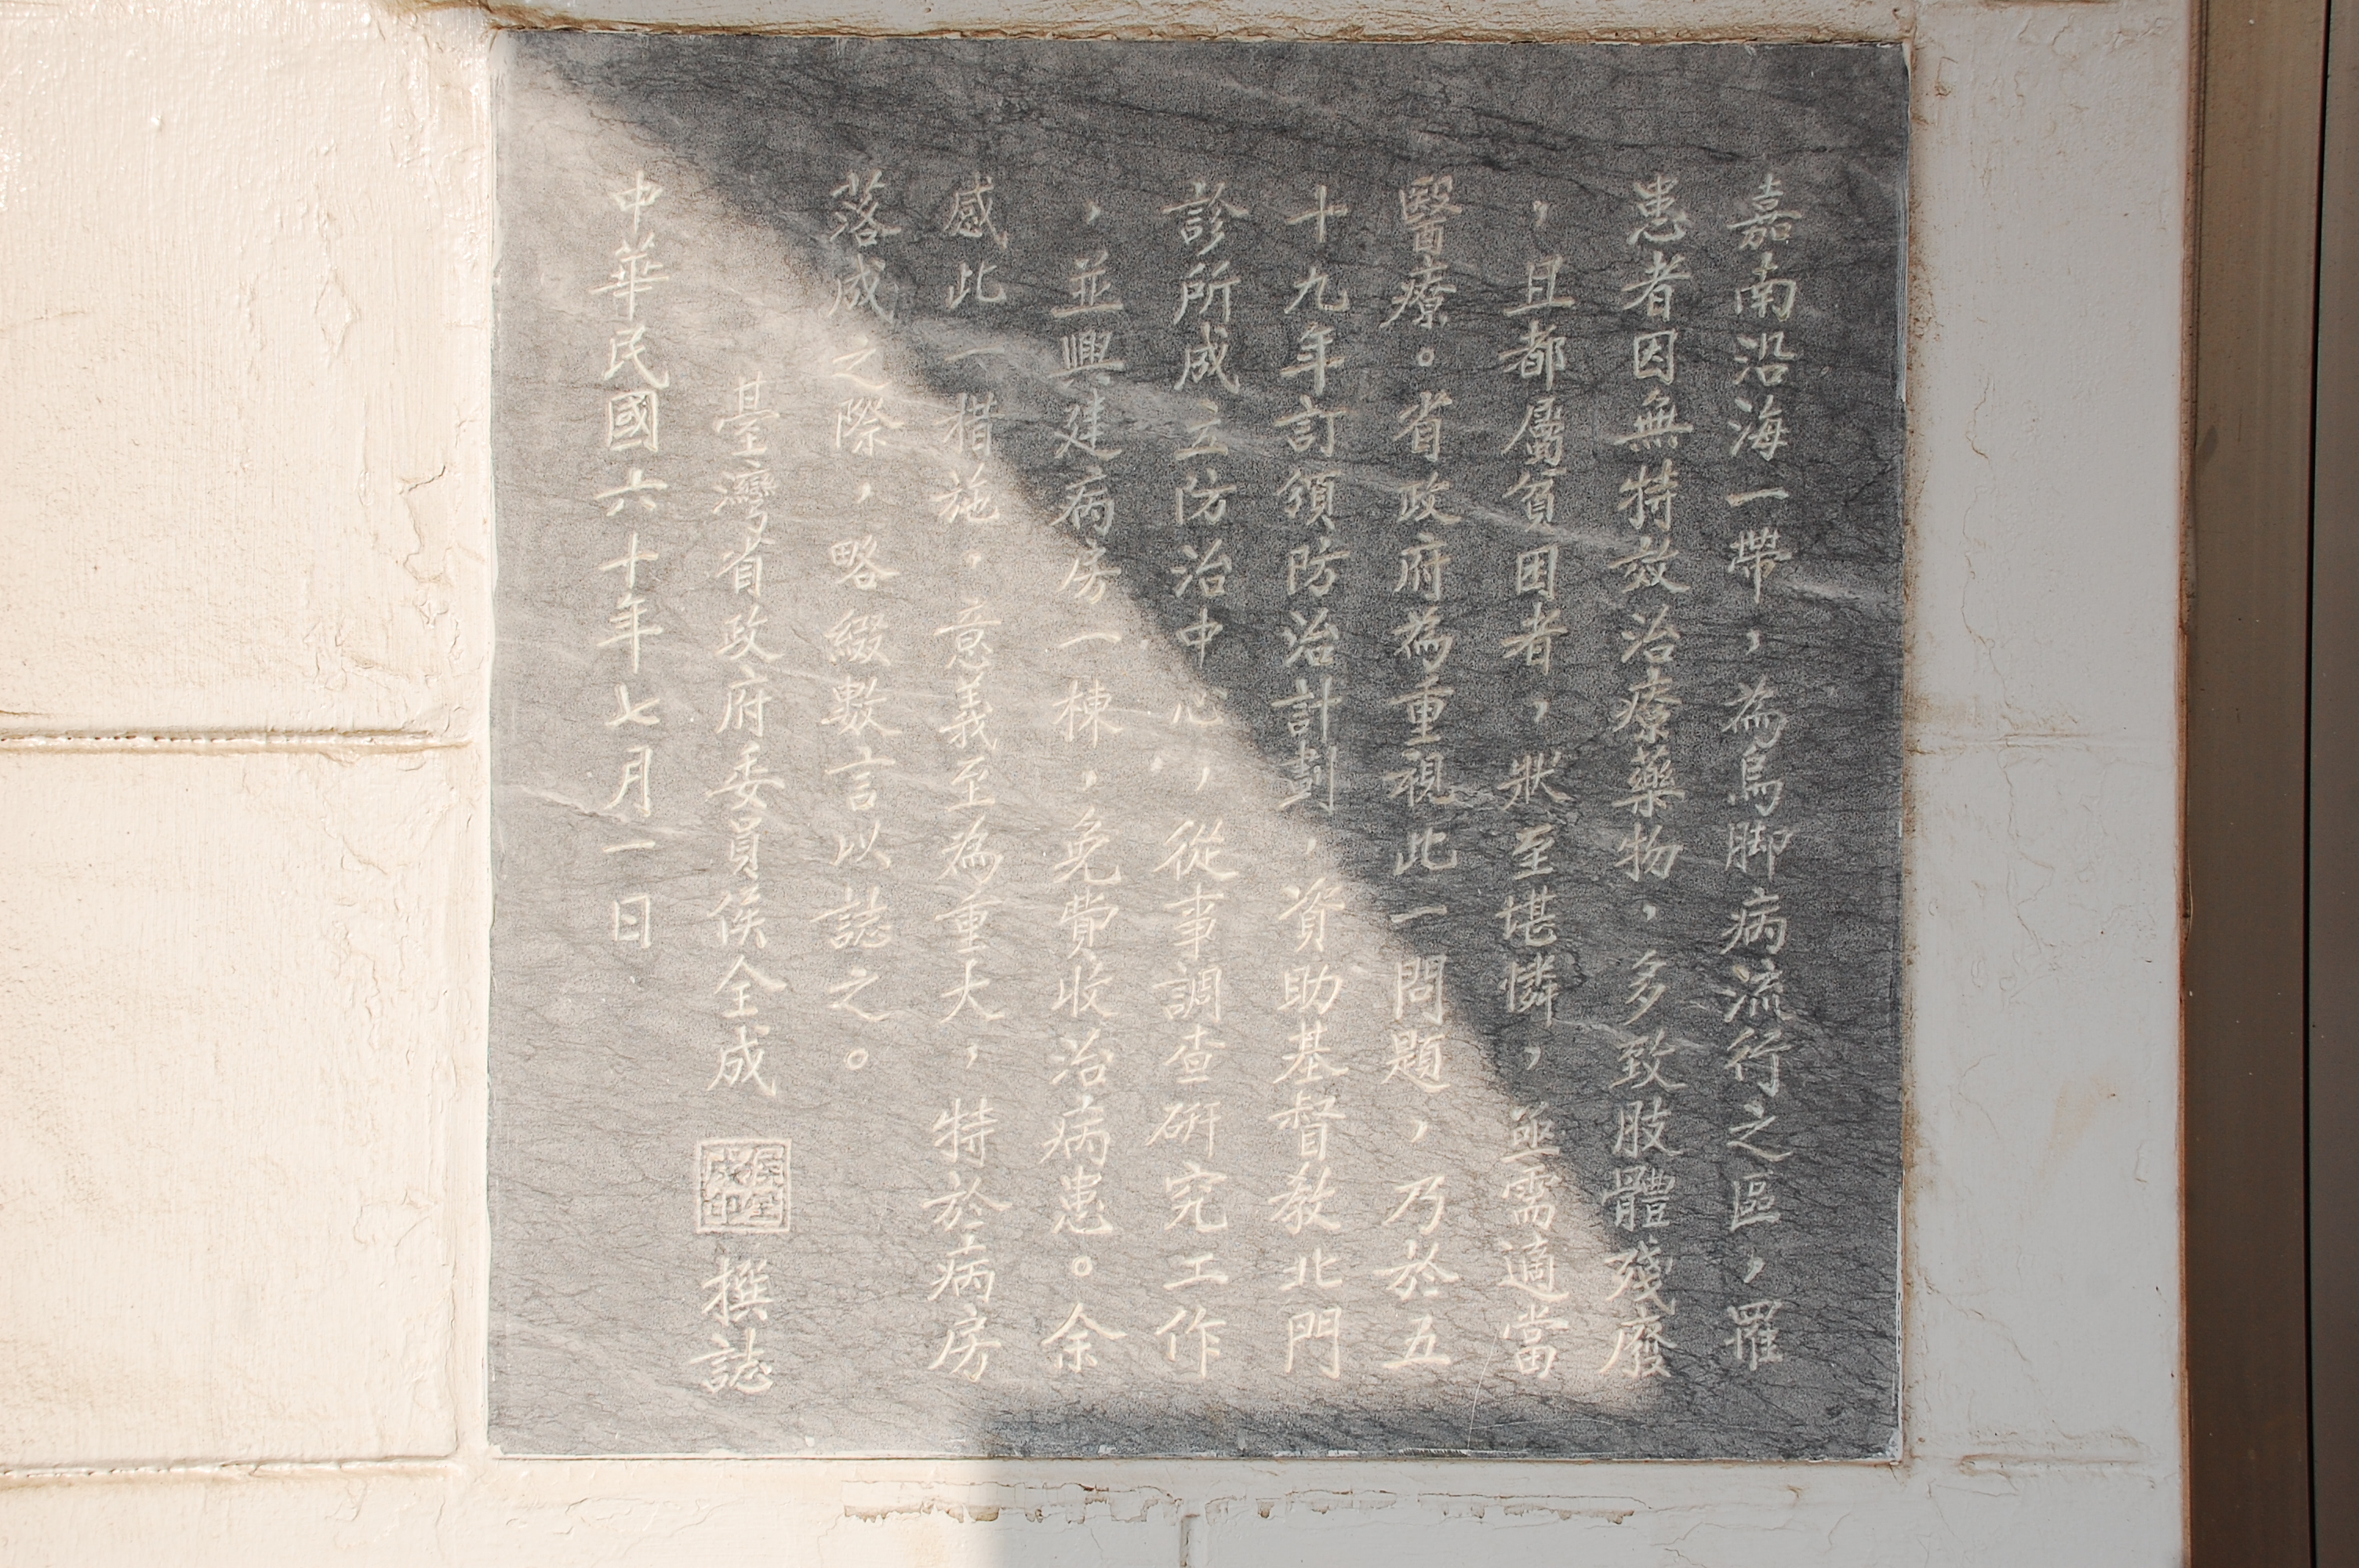 嘉南沿海一帶，為烏脚病流行之區，罹
患者因無特效治療藥物，多致肢體殘廢
，且都屬貧困者，狀至堪憐，亟需適當
醫療。省政府為重視此一問題，乃於五
十九年訂頒防治計劃，資助基督教北門
診所成立防治中心，從事調查研究工作
，並興建病房一棟，免費收治病患。余
感此一措施，意義至為重大，特於病房
落成之際，略綴數言以誌之。
臺灣省政府委員侯全成 侯全成印 撰誌
中華民國六十年七月一日